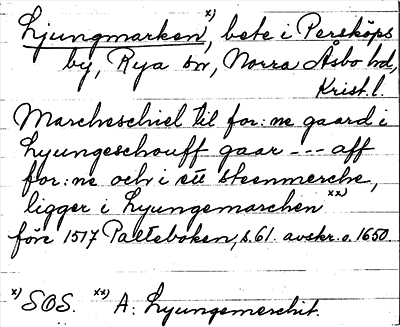 Ljungmarken x), bete i Persköps
by, Rya sn, Norra Åsbo hd,
Krist. l.
Marcheschiel til for:ne gaard i
Lyungeschouff gaar --- aff
for:ne och i ett steenmerche,
ligger i Lyungemarchen xx)
före 1517 Palteboken, s. 61. avskr. o. 1650.
x) SOS. xx) A: Lyungemerchit.